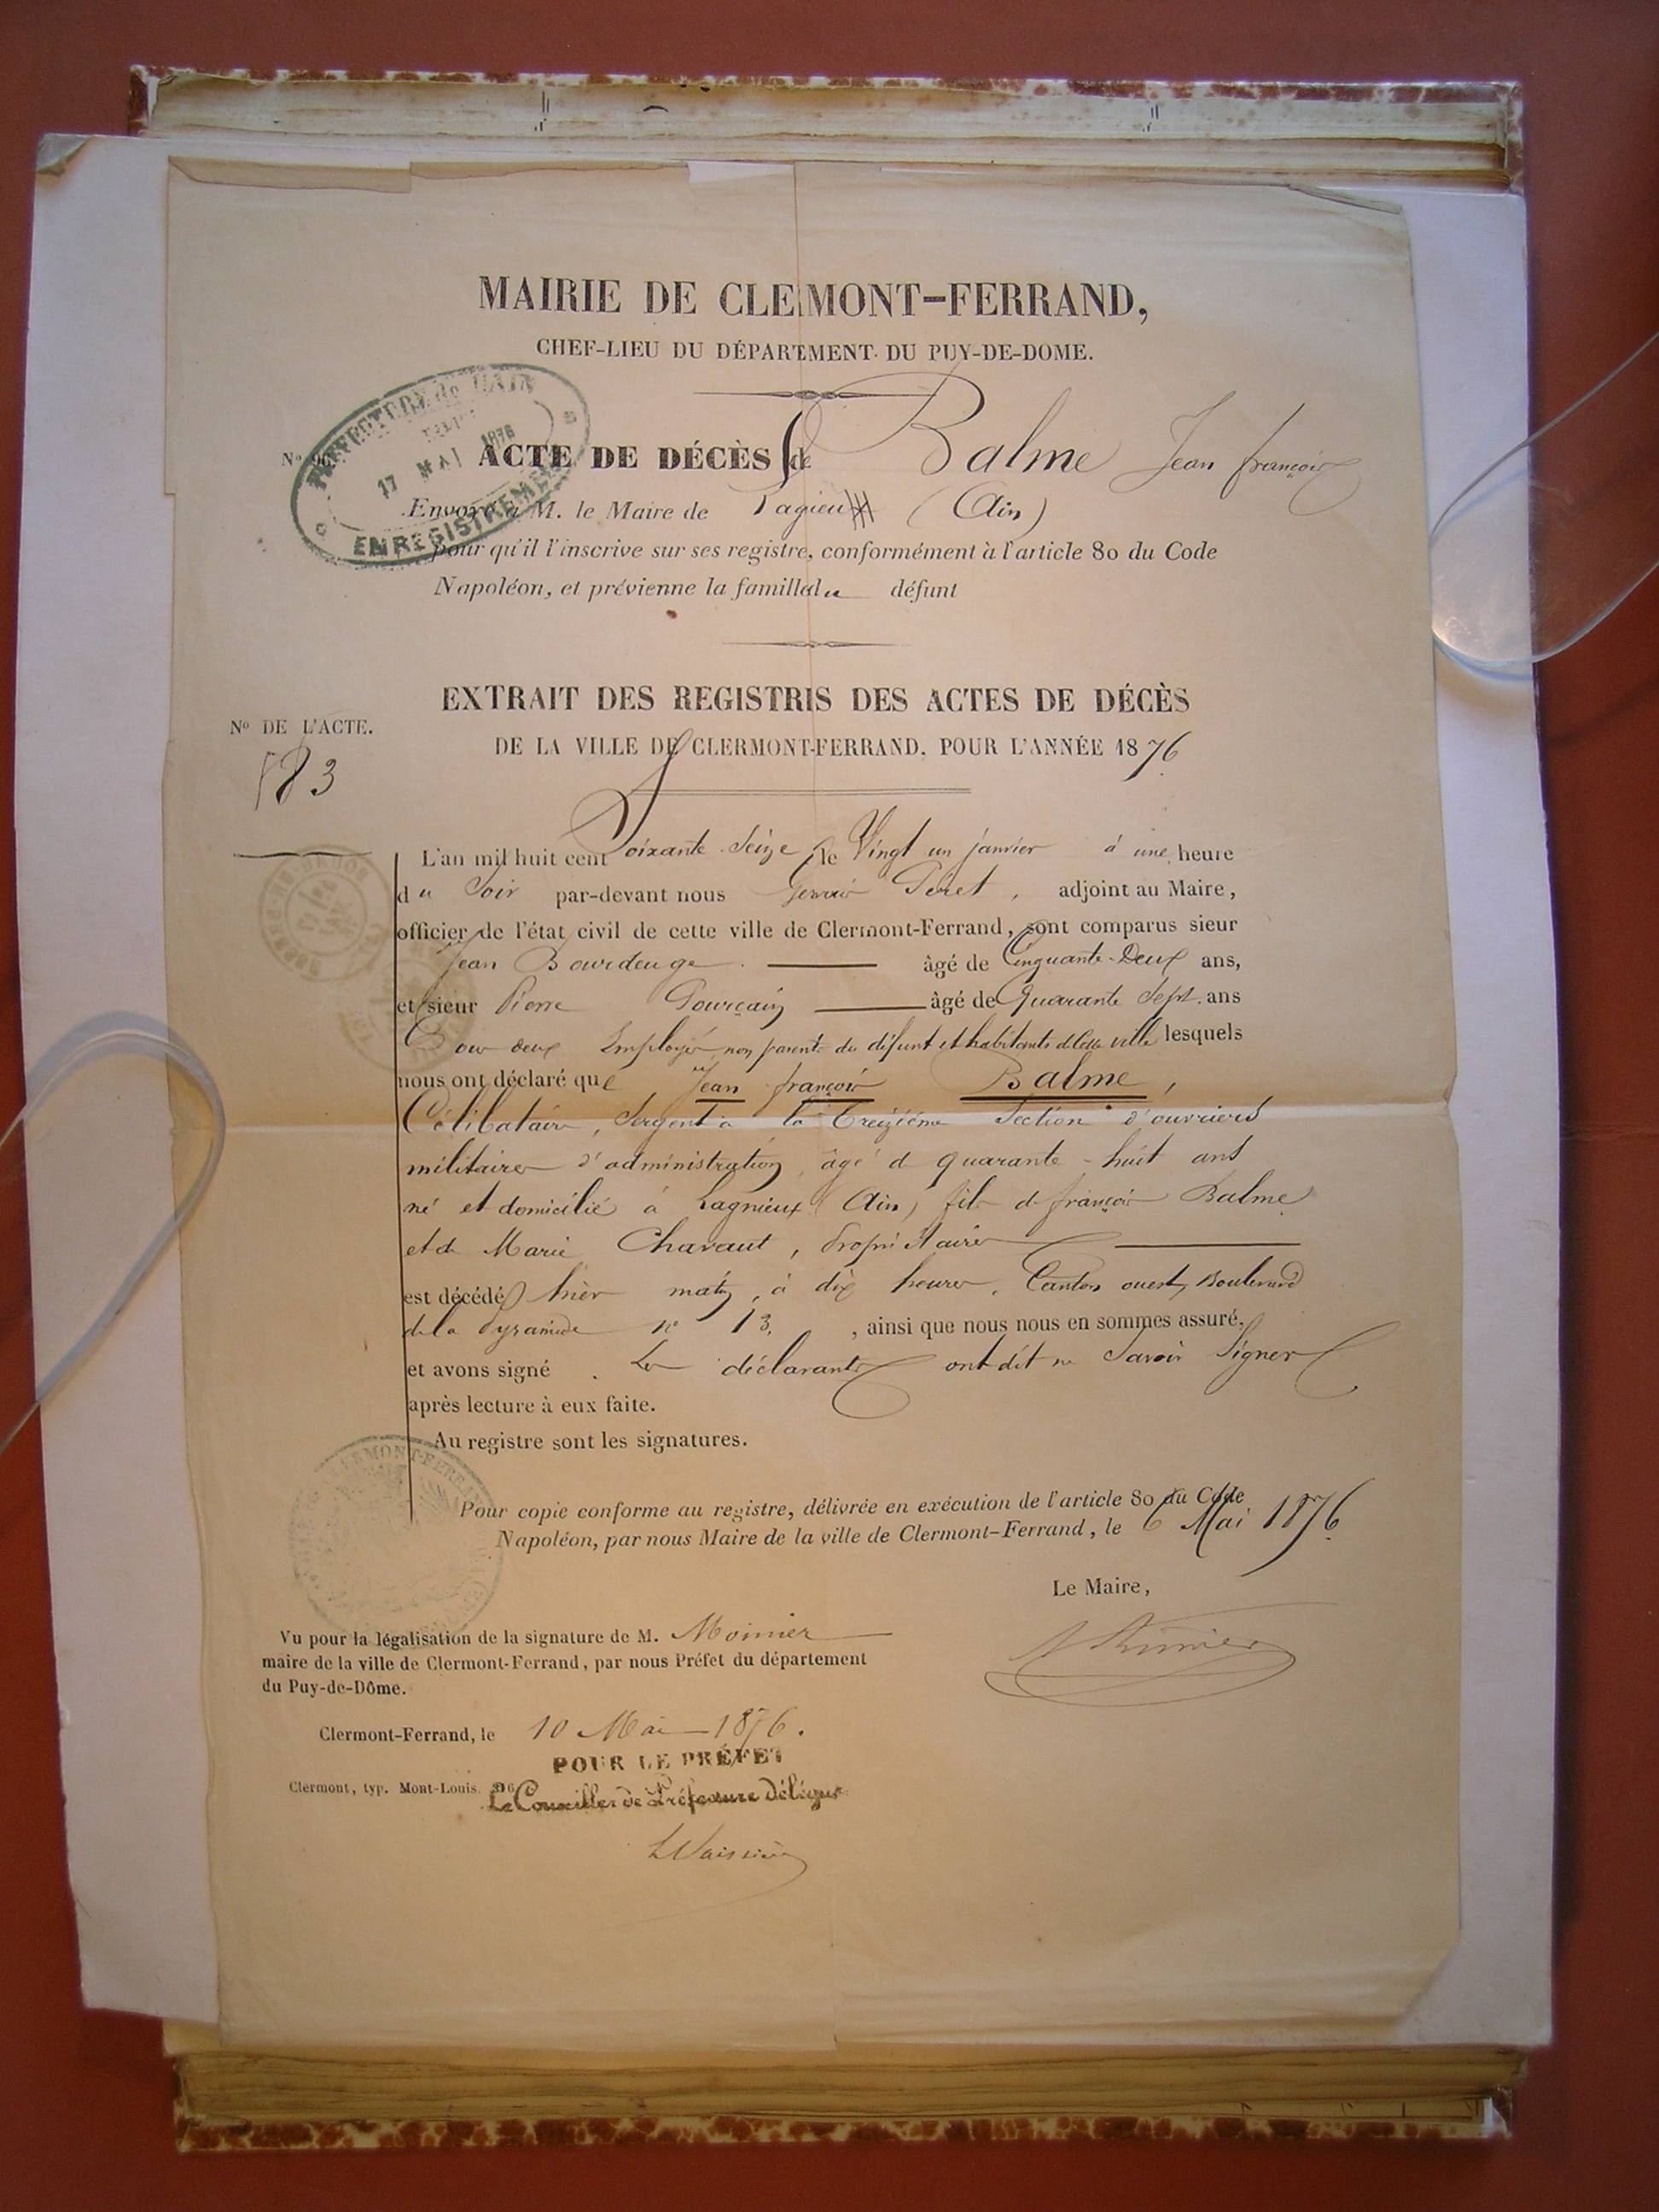 MAIRIE DE CLEMONT-FERRAND,
CHEF-LIEU DU DÉPARTMENT DU PUY-DE-DOME.
PRÉFECTURE de L'AIN
17 MAI 1876
ENREGISTREMENT
No 96.
ACTE DE DÉCÈS de Balme Jean françois
Envoyé à M. le Maire de Lagieu (Ain)
pour qu'il l'inscrive sur ses registre, conformément à l'article 80 du Code
Napoléon, et prévienne la famille du défunt
EXTRAIT DES REGISTRIS DES ACTES DE DÉCÈS
No DE L'ACTE.
DE LA VILLE DE CLERMONT-FERRAND, POUR L'ANNÉE 1876
583
L'an mil huit cent Soixante Seize le Vingt un janvier à une heure
du Soir par-devant nous Gervais , adjoint au Maire,
officier de l'état civil de cette ville de Clermont-Ferrand, sont comparus sieur
Jean Bourdeuge âgé de Cinquante-Deux ans,
et sieur Pierre Pourçain âgé de Quarante Sept ans
Tous deux Employés non parents du défunt et habitants de cette ville lesquels
nous ont déclaré que Jean françois Balme,
Célibataire, Sergent à la Treizième Section d'ouvriers
militaires d'administration, âgé de quarante-huit ans
né et domicilié à Lagnieux (Ain) fils de françois Balme
et de Marie Chavaut, Propriétaires
est décédé hier matin, à dix heures, Canton ouest, Boulevard
de la Pyramide no 13, , ainsi que nous nous en sommes assuré,
et avons signé . Les déclarants ont dit ne Savoir Signer
après lecture à eux faite.
Au registre sont les signatures.
CLERMONT-FERRAND
Pour copie conforme au registre, délivrée en exécution de l'article 80 du Code
Napoléon, par nous Maire de la ville de Clermont-Ferrand, le 6 Mai 1876
Le Maire,
Vu pour la légalisation de la signature de M. Moinier
maire de la ville de Clermont-Ferrand, par nous Préfet du département
du Puy-de-Dôme.
Clermont-Ferrand, le 10 Mai 1876.
POUR LE PRÉFET
Clermont, typ. Mont-Louis.
Le Conseiller de Préfecture Délégué